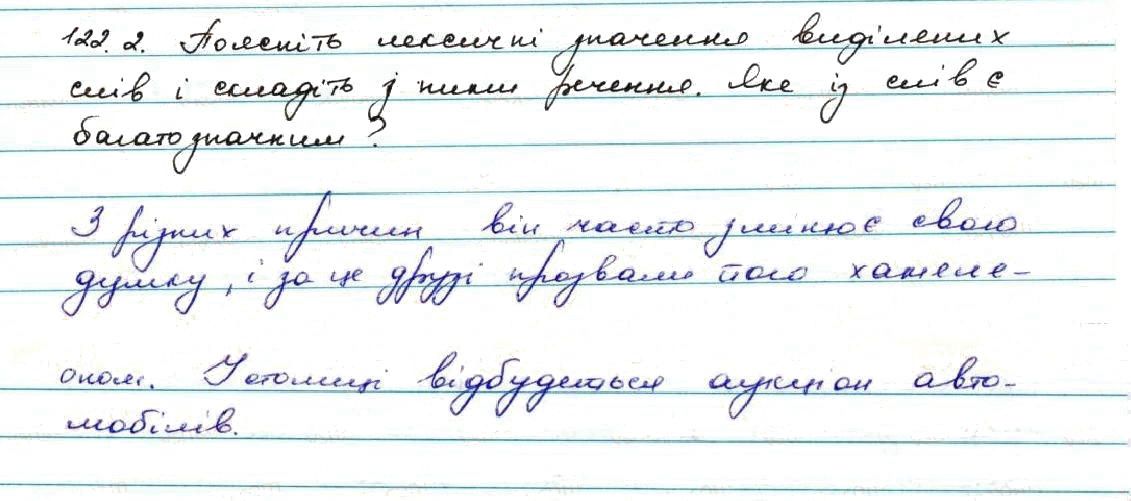 122. 2. Поясніть лексичні значення виділених
слів і складіть з ними речення. Яке із слів є
багатозначним?
З різних причин він часто змінює свою
думку, і за це друзі прозвали його хамеле-
оном. У столиці відбудеться аукціон авто-
мобілів.